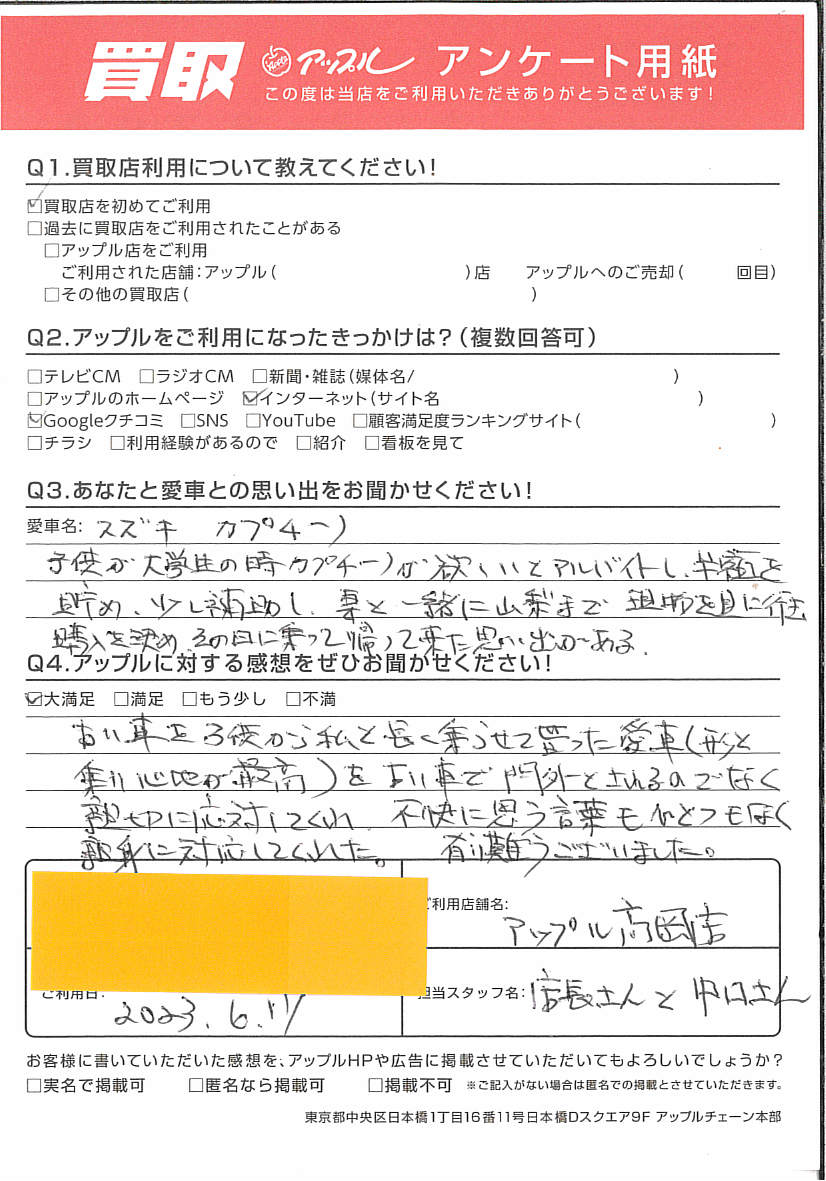 買取 アップル アンケート用紙
この度は当店をご利用いただきありがとうございます!
Q1.買取店利用について教えてください!
☑買取店を初めてご利用
□過去に買取店をご利用されたことがある
□アップル店をご利用
ご利用された店舗:アップル( )店 アップルへのご売却( 回目)
□その他の買取店( )
Q2.アップルをご利用になったきっかけは?(複数回答可)
□テレビCM □ラジオCM □新聞・雑誌(媒体名/ )
□アップルのホームページ ☑インターネット(サイト名 )
☑Googleクチコミ □SNS □YouTube □顧客満足度ランキングサイト( )
□チラシ □利用経験があるので □紹介 □看板を見て
Q3.あなたと愛車との思い出をお聞かせください!
愛車名: スズキ カプチーノ
子供が大学生の時カプチーノが欲しいとアルバイトし、半額を
貯め、少し補助し、妻と一緒に山梨まで 現物を見に行き
購入を決め、その日に乗って帰って来た思い出がある.
Q4.アップルに対する感想をぜひお聞かせください!
☑大満足 □満足 □もう少し □不満
古い車を子供から私と長く乗らせて貰った愛車(形と
乗り心地が最高)を古い車で門外とされるのでなく
親切に応対してくれ 不快に思う言葉もひとつもなく
親身に対応してくれた。 有難うございました。
ご利用店舗名:
アップル高岡店
ご利用日:
2023.6.11
担当スタッフ名: 店長さんと 中口さん
お客様に書いていただいた感想を、アップルHPや広告に掲載させていただいてもよろしいでしょうか?
□実名で掲載可 □匿名なら掲載可 □掲載不可 ※ご記入がない場合は匿名での掲載とさせていただきます。
東京都中央区日本橋1丁目16番11号日本橋Dスクエア9F アップルチェーン本部